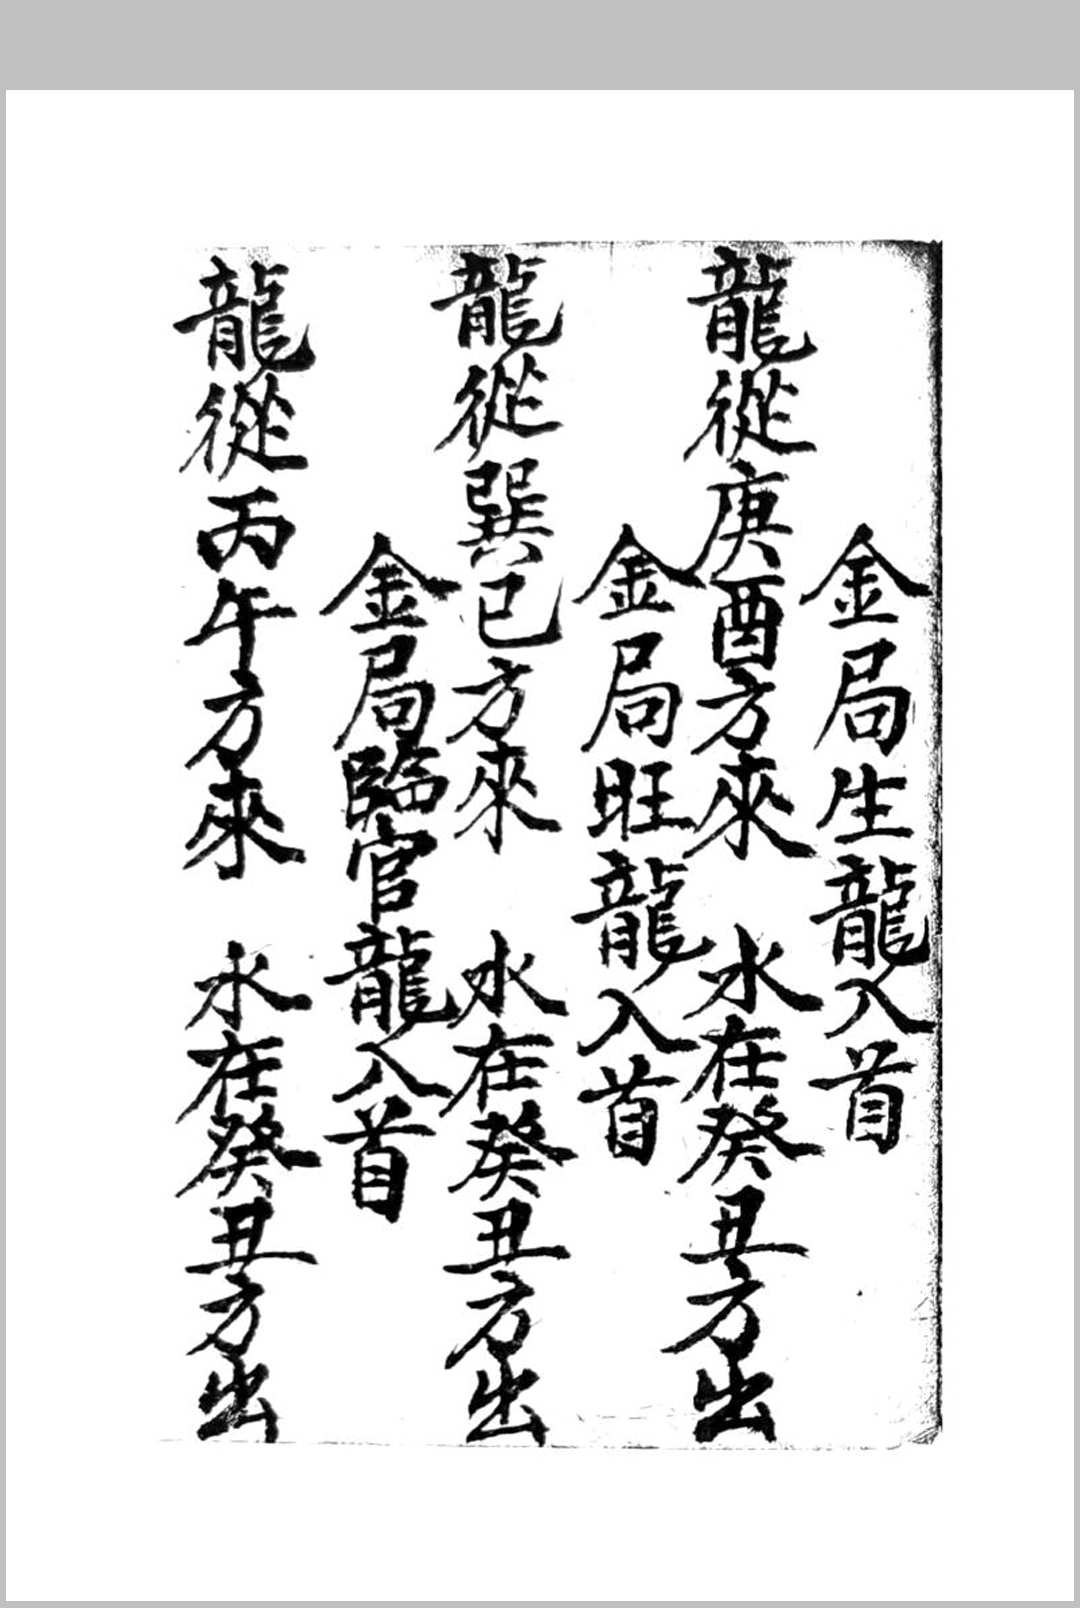 金局生龍入首
龍從庚酉方來　水在癸丑方出
金局旺龍入首
龍從巽巳方來　水在癸丑方出
金局臨官龍入首
龍從丙午方來　水在癸丑方出